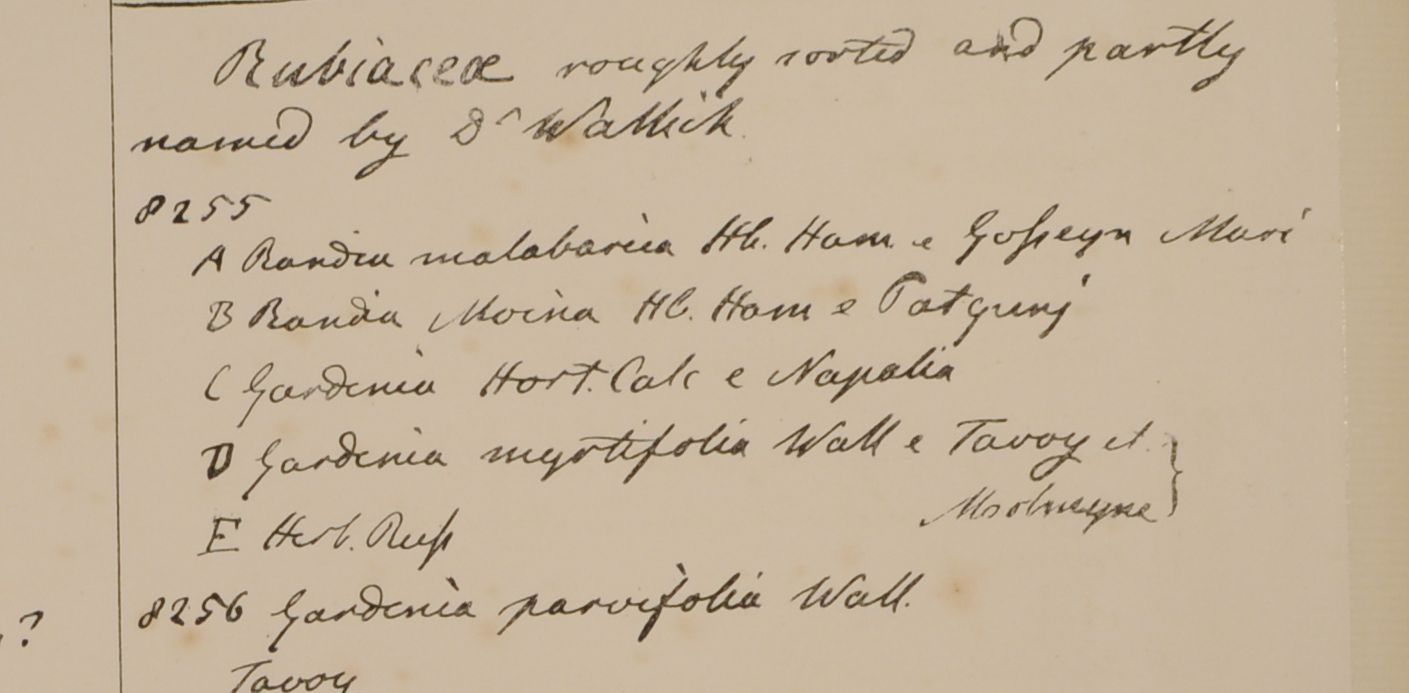 Rubiaceæ roughly sorted and partly
named by Dr Wallich
8255
A Randia malabarica Hb. Ham e Gosseyn Mari
B Randia Moina Hb. Ham e Patgunj
C Gardenia Hort. Calc e Napalia
D Gardenia myrtifolia Wall e Tavoy et
Moolmeyne
E Herb. Russ
8256 Gardenia parvifolia Wall.
?
Tavoy